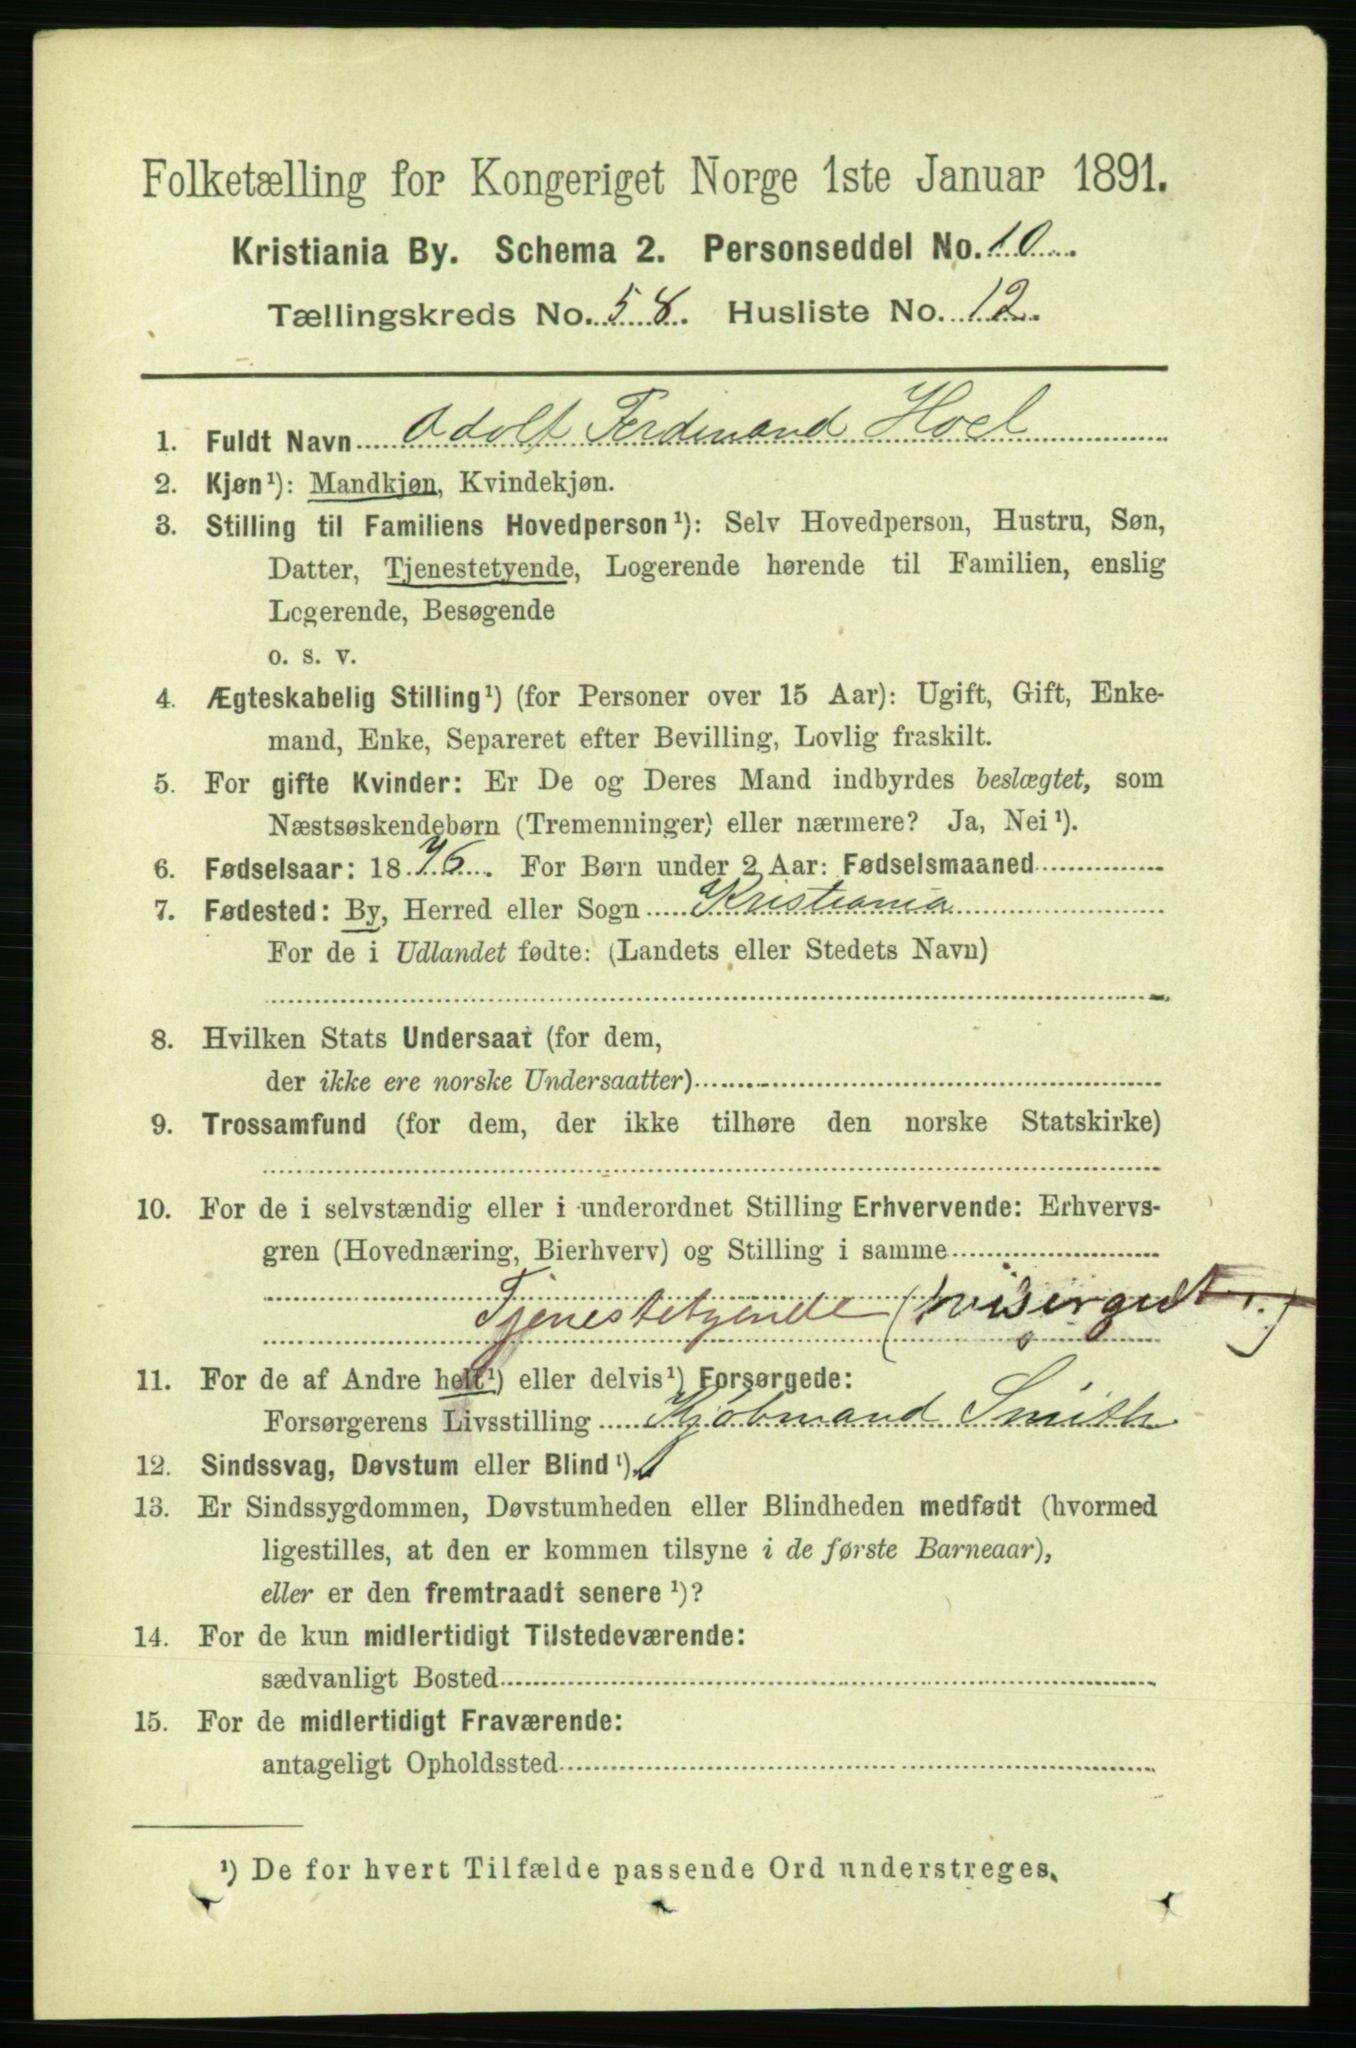 Folketælling for Kongeriget Norge 1ste Januar 1891.
Kristiania By. Schema 2. Personseddel No. 10
Tællingskreds No. 58. Husliste No. 12.
1. Fuldt Navn Adolf Ferdinand Hoel
2. Kjøn¹): Mandkjøn, Kvindekjøn.
3. Stilling til Familiens Hovedperson¹): Selv Hovedperson, Hustru, Søn,
Datter, Tjenestetyende, Logerende hørende til Familien, enslig
Logerende, Besøgende
o. s. v.
4. Ægteskabelig Stilling¹) (for Personer over 15 Aar): Ugift, Gift, Enke-
mand, Enke, Separeret efter Bevilling, Lovlig fraskilt.
5. For gifte Kvinder: Er De og Deres Mand indbyrdes beslægtet, som
Næstsøskendebørn (Tremenninger) eller nærmere? Ja, Nei¹).
6. Fødselsaar: 1876. For Børn under 2 Aar: Fødselsmaaned
7. Fødested: By, Herred eller Sogn Kristiania
For de i Udlandet fødte: (Landets eller Stedets Navn)
8. Hvilken Stats Undersaat (for dem,
der ikke ere norske Undersaatter)
9. Trossamfund (for dem, der ikke tilhøre den norske Statskirke)
10. For de i selvstændig eller i underordnet Stilling Erhvervende: Erhvervs-
gren (Hovednæring, Bierhverv) og Stilling i samme
Tjenestetyende (visergut)
11. For de af Andre helt¹) eller delvis¹) Forsørgede:
Forsørgerens Livsstilling Kjøbmand Smith
12. Sindssvag, Døvstum eller Blind¹).
13. Er Sindssygdommen, Døvstumheden eller Blindheden medfødt (hvormed
ligestilles, at den er kommen tilsyne i de første Barneaar),
eller er den fremtraadt senere¹)?
14. For de kun midlertidigt Tilstedeværende:
sædvanligt Bosted
15. For de midlertidigt Fraværende:
antageligt Opholdssted
¹) De for hvert Tilfælde passende Ord understreges.